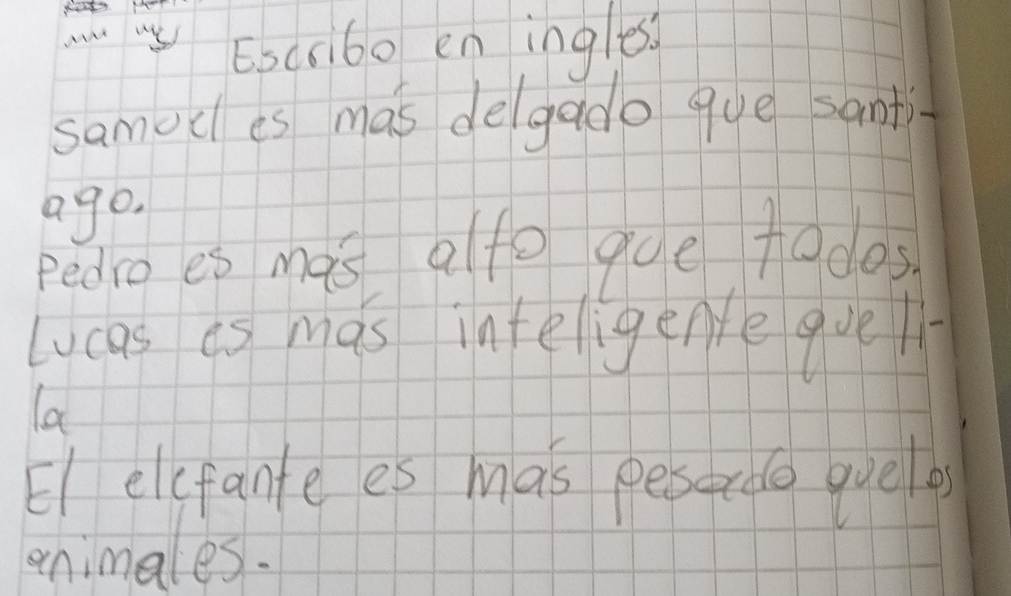 Escribo en ingles:
Samuel es más delgado que santi-
ago.
Pedro es más alto que todos.
Lucas es más inteligente que li-
la
El elefante es más pesado que los
animales.